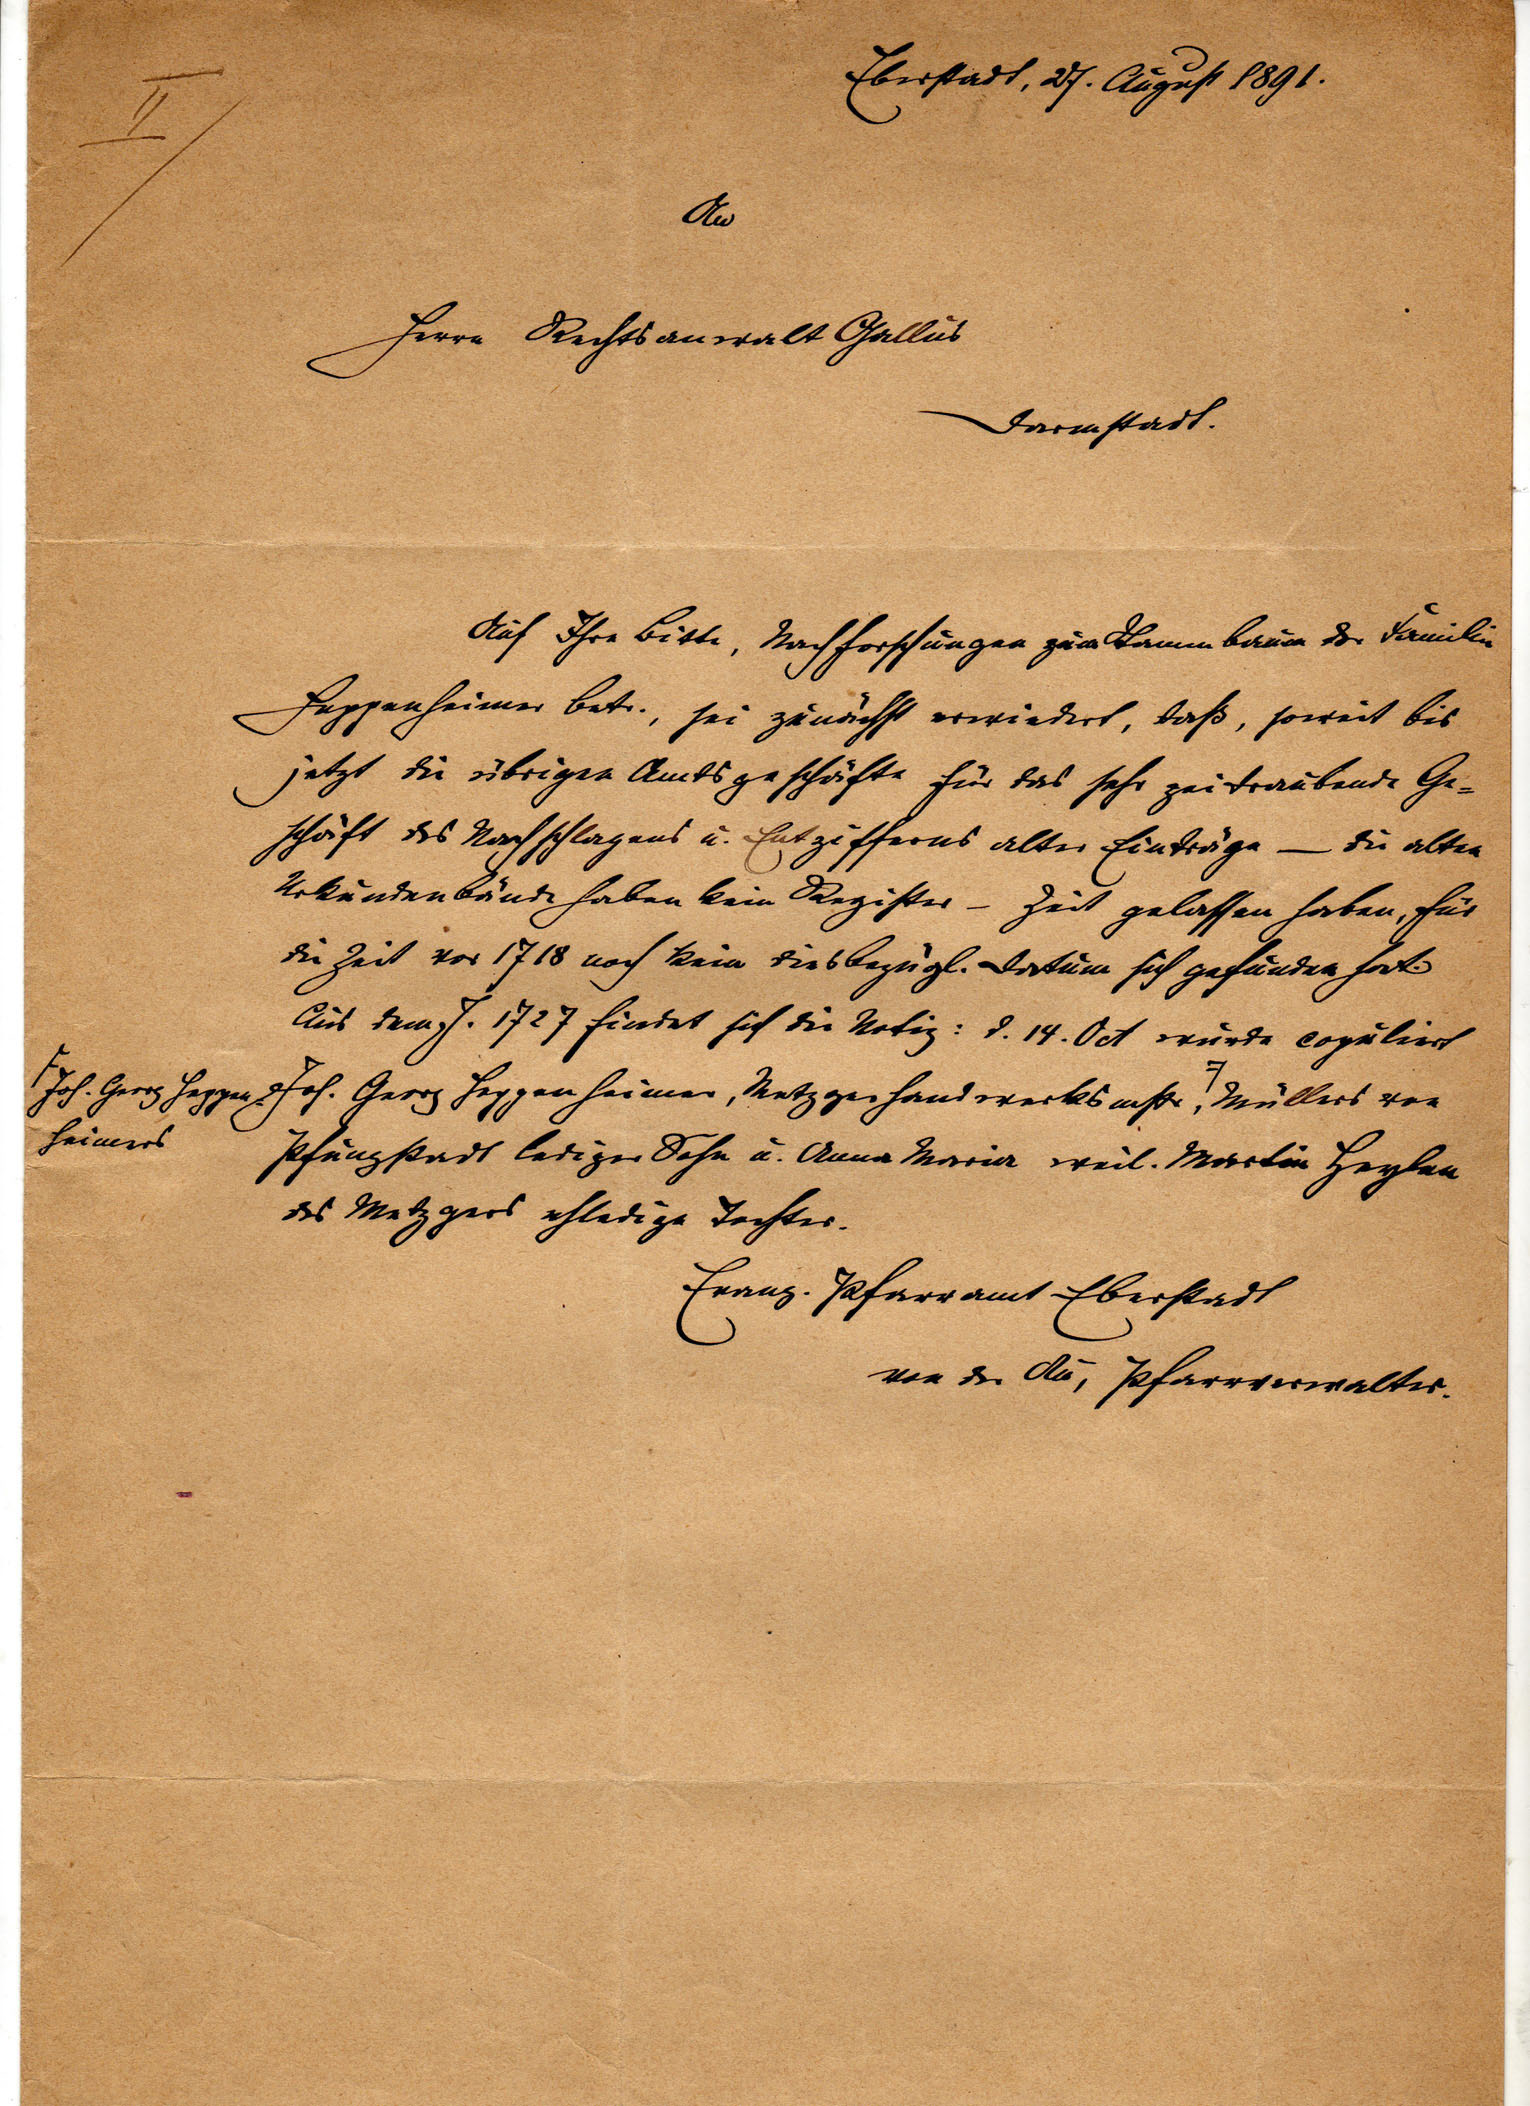 II
Eberstadt, 27. August 1891.
An
Herrn Rechtsanwalt Gallus
Darmstadt.
Auf Ihre Bitte, Nachforschungen zum Stammbaum der Familie
Heppenheimer betr., sei zunächst erwiedert, daß, soweit bis
jetzt die übrigen Amtsgeschäfte für das sehr zeitraubende Ge=
schäft des Nachschlagens u. Entzifferns alter Einträge — die alten
Urkundenbände haben kein Register — Zeit gelassen haben, für
die Zeit vor 1718 noch kein diesbezügl. Datum sich gefunden hat.
Aus dem J. 1727 findet sich die Notiz: d. 14. Oct wurde copuliert
Joh. Georg Heppenheimer, Metzgerhandwerksmstr, Müllers von
Joh. Georg Heppen=
heimers
Pfungstadt lediger Sohn u. Anna Maria weil. Martin Heylen
des Metzgers ehledige Tochter.
Evang. Pfarramt Eberstadt
von der Au, Pfarrverwalter.